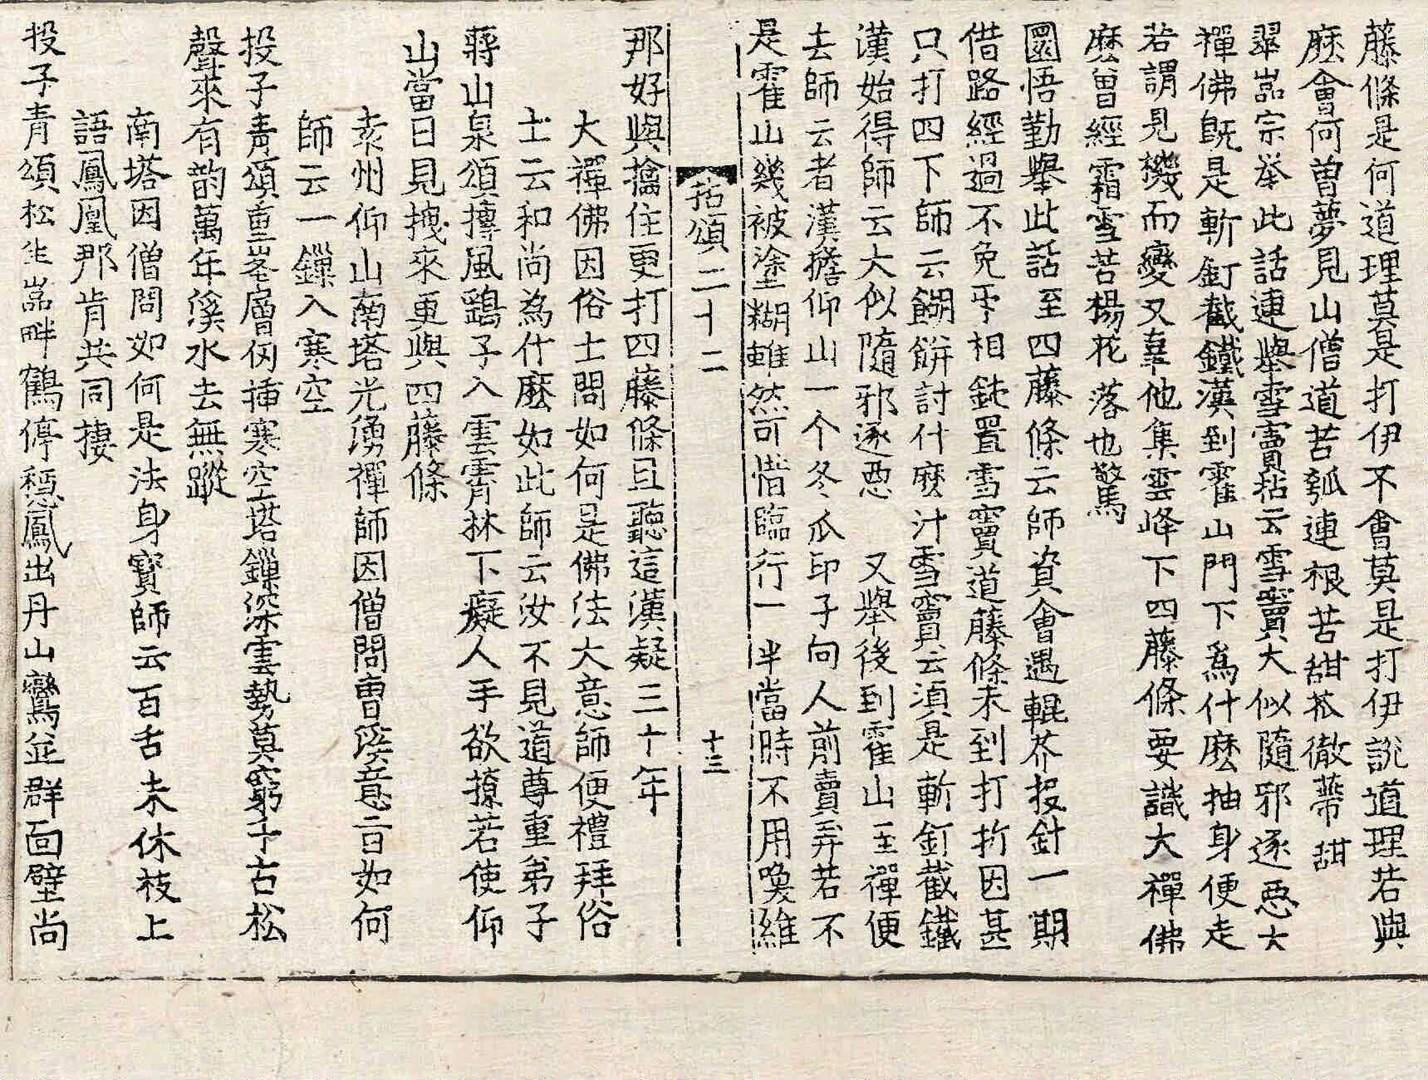 藤條是何道理莫是打伊不會莫是打伊說道理若與
麽會何曾夢見山僧道苦瓠連根苦甜苽徹蔕甜
翠嵓宗举此話連擧雪竇拈云雪竇大似隨邪逐惡大
禪佛旣是斬釘截鐵漢到霍山門下爲什麽抽身便走
若謂見機而變又辜他集雲峰下四藤條要識大禪佛
麽曾經霜雪苦楊花落也驚
圜悟勤擧此話至四藤條云師資會遇輥芥投針一期
借路經過不免牙相鈍置雪竇道藤條未到打折因甚
只打四下師云餬餠討什麽汁雪竇云湏是斬釘截鐵
漢始得師云大似隨邪逐惡 又擧後到霍山至禪便
去師云者漢擔仰山一个冬瓜印子向人前賣弄若不
是霍山幾被塗糊雖然可惜臨行一半當時不用喚維
拈頌二十二 十三
那好與擒住更打四藤條且聽這漢疑三十年
大禪佛因俗士問如何是佛法大意師便禮拜俗
士云和尚為什麽如此師云汝不見道尊重弟子
蔣山泉頌摶風鷂子入雲霄林下癡人手欲撩若使仰
山當日見拽來更與四藤條
袁州仰山南塔光湧禪師因僧問曹溪意旨如何
師云一鏁入寒空
投子靑頌重峯層仞揷寒空塔鏁深雲勢莫窮千古松
聲來有韵萬年溪水去無蹤
南塔因僧問如何是法身寶師云百舌未休枝上
語鳳凰那肯共同棲
投子青頌松生嵓畔鶴停穩鳳出丹山鸞並群面壁尚